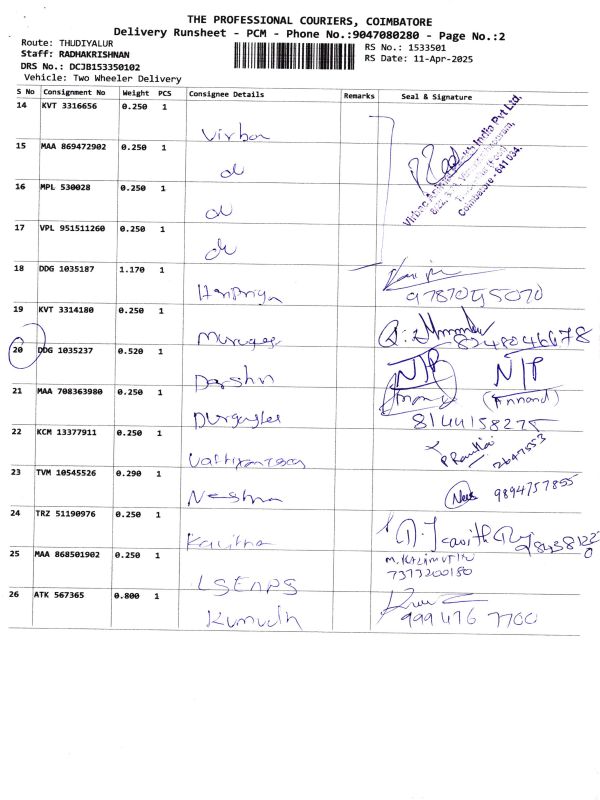 THE PROFESSIONAL COURIERS, COIMBATORE
Delivery Runsheet - PCM - Phone No.:9047080280 - Page No.:2
Route: THUDIYALUR
RS No.: 1533501
Staff: RADHAKRISHNAN
RS Date: 11-Apr-2025
DRS No.: DCJB153350102
Vehicle: Two Wheeler Delivery
S No Consignment No Weight PCS Consignee Details Remarks Seal & Signature
14 KVT 3316656 0.250 1
Virbac
15 MAA 869472902 0.250 1
do
16 MPL 530028 0.250 1
do
17 VPL 951511260 0.250 1
do
Virbac Animal Health India Pvt Ltd.
Coimbatore - 641 034.
18 DDG 1035187 1.170 1
Haripriya
19 KVT 3314180 0.250 1
Murugesh
8248046678
20 DDG 1035237 0.520 1
Darshn
N/P N/P
(Annand)
21 MAA 708363980 0.250 1
8144158275
22 KCM 13377911 0.250 1
2647553
23 TVM 10545526 0.290 1
Neshna
9894757855
24 TRZ 51190976 0.250 1
Kavitha
25 MAA 868501902 0.250 1
7373200180
26 ATK 567365 0.800 1
Kumudh
999 476 7700